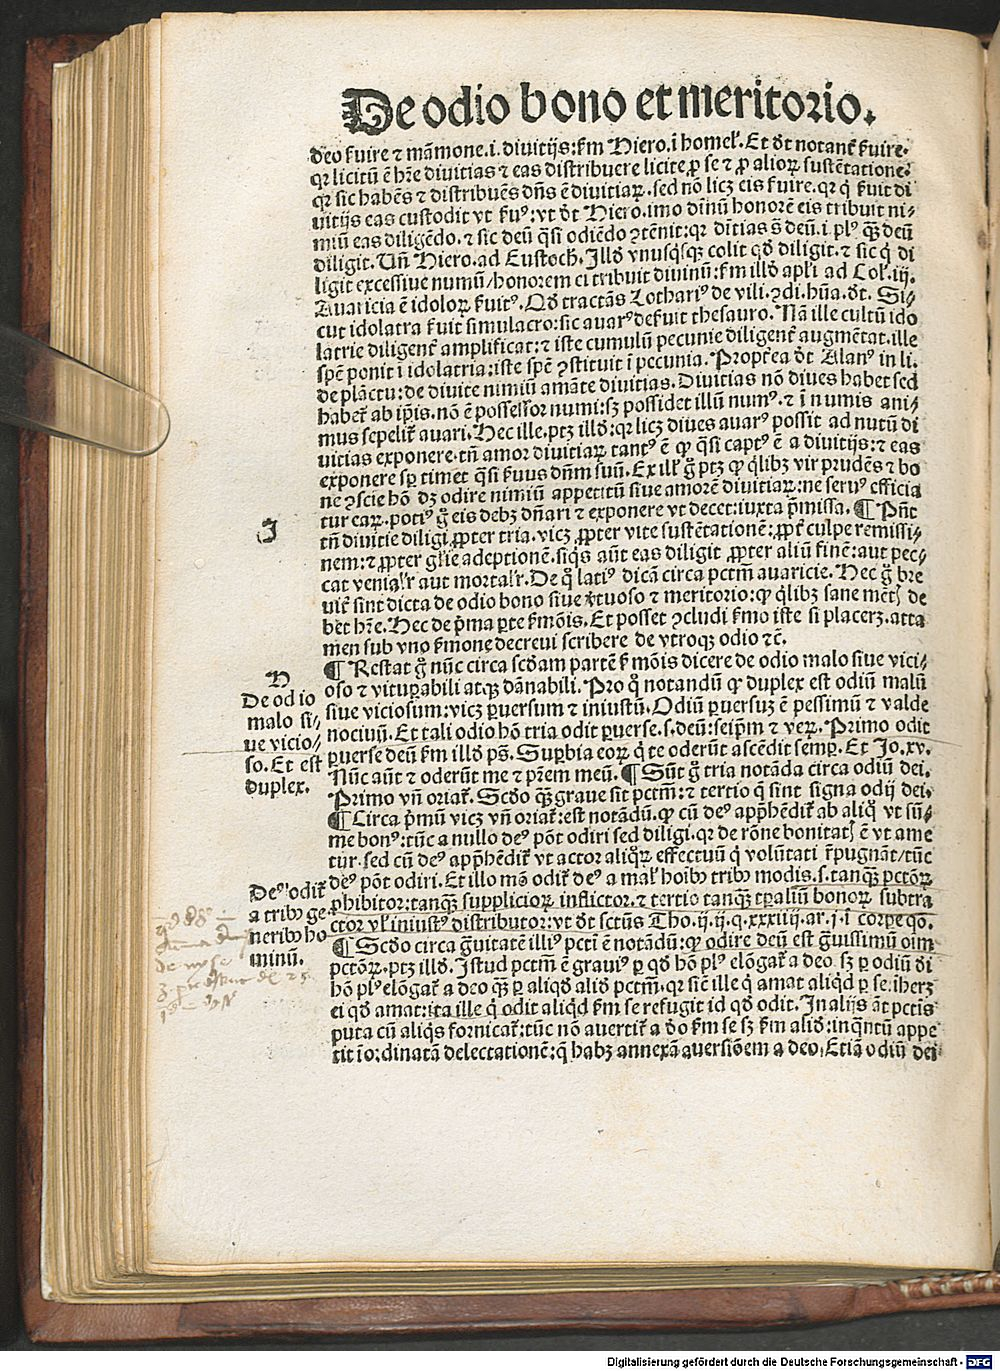 De odio bono et meritorio.
deo ẜuire ⁊ mãmone.i. diuitijs: ẜm Hiero.i homel̃. Et d̃t notant̃ ẜuire.
qꝛ licitũ ẽ hr̃e diuitias ⁊ eas distribuere licite ꝓ se ⁊ ꝓ alioꝝ sustẽtatione:
qꝛ sic habẽs ⁊ distribuẽs dñs ẽ diuitiaꝝ. sed nõ licꝫ eis ẜuire. qꝛ q̇ ẜuit di
uitijs eas custodit vt ẜuꝰ: vt d̃t Hiero. imo diuinũ honorẽ eis tribuit ni⸗
miũ eas diligẽdo. ⁊ sic deũ q̃si odiẽdo ꝯtẽnit: qꝛ diuitias s̃ deũ.i plꝰ qꝫ̃ deũ
diligit. Vñ Hiero. ad Eustoch̃. Illd̃ vnusqꝫqꝫ colit qd̃ diligit. ⁊ sic q̇ di
ligit excessiue numũ/honorem ei tribuit diuinũ: ẜm illd̃ apl̃i ad Col̃. iij.
Auaricia ẽ idoloꝝ ẜuitꝰ. Qd̃ tractãs Lothariꝰ de vili. ꝯdi. hũa. d̃t. Si⸗
cut idolatra ẜuit simulacro: sic auarꝰ deẜuit thesauro. Nã ille cultũ ido
latrie diligent̃ amplificat: ⁊ iste cumulũ pecunie diligent̃ augmẽtat. ille
spẽ ponit i idolatria: iste spẽ ꝯstituit i pecunia. Propt̃ea d̃t Alanꝰ in li.
de plãctu: de diuite nimiũ amãte diuitias. Diuitias nõ diues habet sed
habet̃ ab ip̃is. nõ ẽ possessor numi: sꝫ possidet illũ numꝰ. ⁊ i numis ani⸗
mus sepelit̃ auari. Hec ille. ptꝫ illd̃: qꝛ licꝫ diues auarꝰ possit ad nutũ di
uitias exponere. tñ amor diuitiaꝝ tantꝰ ẽ ꝙ q̃si captꝰ ẽ a diuitijs: ⁊ eas
exponere sꝑ timet q̃si ẜuus dñm suũ. Ex ill̃ g̃ ptꝫ ꝙ q̇libꝫ vir prudẽs ⁊ bo
ne ꝯscie hõ dꝫ odire nimiũ appetitũ siue amorẽ diuitiaꝝ: ne seruꝰ efficia
tur eaꝝ. potiꝰ g̃ eis debꝫ dñari ⁊ exponere vt decet: iuxta p̃missa. ¶ Pñt
tñ diuitie diligi ꝓpter tria. vicꝫ ꝓpter vite sustẽtationẽ: ꝓpt̃ culpe remissi⸗
nem: ⁊ ꝓpter gl̃ie adeptionẽ. siq̇s aũt eas diligit ꝓpter aliũ finẽ: aut pec⸗
cat venial̃r aut mortal̃r. De q̊ latiꝰ dicã circa pctm̃ auaricie. Hec g̃ bre
uit̃ sint dicta de odio bono siue v̓tuoso ⁊ meritorio: ꝙ q̇libꝫ sane mẽtꝭ de
bet hr̃e. Hec de p̓ma ꝑte ẜmõis. Et posset ꝯcludi ẜmo iste si placerꝫ. atta
men sub vno ẜmone decreui scribere de vtroqꝫ odio ⁊c̃.
¶ Restat g̃ nũc circa scd̃am partẽ ẜmõis dicere de odio malo siue vici⸗
oso ⁊ vituꝑabili atqꝫ dãnabili. Pro q̊ notandũ ꝙ duplex est odiũ malũ
siue viciosum: vicꝫ ꝑuersum ⁊ iniustũ. Odiũ ꝑuersuꝫ ẽ pessimũ ⁊ valde
nociuũ. Et tali odio hõ tria odit ꝑuerse. s. deũ: seip̃m ⁊ veꝝ. Primo odit
ꝑuerse deũ ẜm illd̃ ps̃. Suꝑbia eoꝝ q̇ te oderũt ascẽdit semꝑ. Et Jo. xv.
Nũc aũt ⁊ oderũt me ⁊ pr̃em meũ. ¶ Sũt g̃ tria notãda circa odiũ dei.
Primo vñ oriat̃. Scd̃o qꝫ̃ graue sit pctm̃: ⁊ tertio q̃ sint signa odij dei.
¶ Circa p̓mũ vicꝫ vñ oriat̃: est notãdũ. ꝙ cũ deꝰ app̃hẽdit̃ ab aliq̊ vt sũ⸗
me bonꝰ: tũc a nullo deꝰ põt odiri sed diligi. qꝛ de rõne bonitatꝭ ẽ vt ame
tur. sed cũ deꝰ app̃hẽdit̃ vt actor aliq̊ꝝ effectuũ q̇ volũtati r̃pugnãt/tũc
deꝰ põt odiri. Et illo mõ odit̃ deꝰ a mal̃ hoibꝰ tribꝰ modis. s. tanqꝫ̃ pctõꝝ
ꝓhibitor: tanqꝫ̃ supplicioꝝ inflictor. ⁊ tertio tanqꝫ̃ tꝑaliũ bonoꝝ subtra
ctor vl̃ iniustꝰ distributor: vt d̃t sctũs Tho. ij. ij. q. xxxiiij. ar. j. i corpe qõ.
¶ Scd̃o circa g̃uitatẽ illiꝰ pcti ẽ notãdũ: ꝙ odire deũ est g̃uissimũ oim
pctõꝝ. ptꝫ illd̃. Istud pctm̃ ẽ grauiꝰ ꝑ qd̃ hõ plꝰ elõgat̃ a deo. sꝫ ꝑ odiũ d̃i
hõ plꝰ elõgat̃ a deo qꝫ̃ ꝑ aliqd̃ aliud pctm̃. qꝛ sic̃ ille q̇ amat aliqd̃ ꝑ se. iherꝫ
ei qd̃ amat: ita ille q̇ odit aliqd̃ ẜm se refugit id qd̃ odit. In alijs aũt pctis
puta cũ aliq̇s fornicat̃: tũc nõ auertit̃ a d̃o ẜm se sꝫ ẜm aliud: inq̃ntũ appe
tit iordinatã delectationẽ: q̃ habꝫ annexã auersiõem a deo. Etiã odiũ dei
J
D
De odio
malo si⸗
ue vicio⸗
so. Et est
duplex.
Deꝰ odit̃
a tribꝰ ge
neribꝰ ho
minũ.
Digitalisierung gefördert durch die Deutsche Forschungsgemeinschaft - DFG